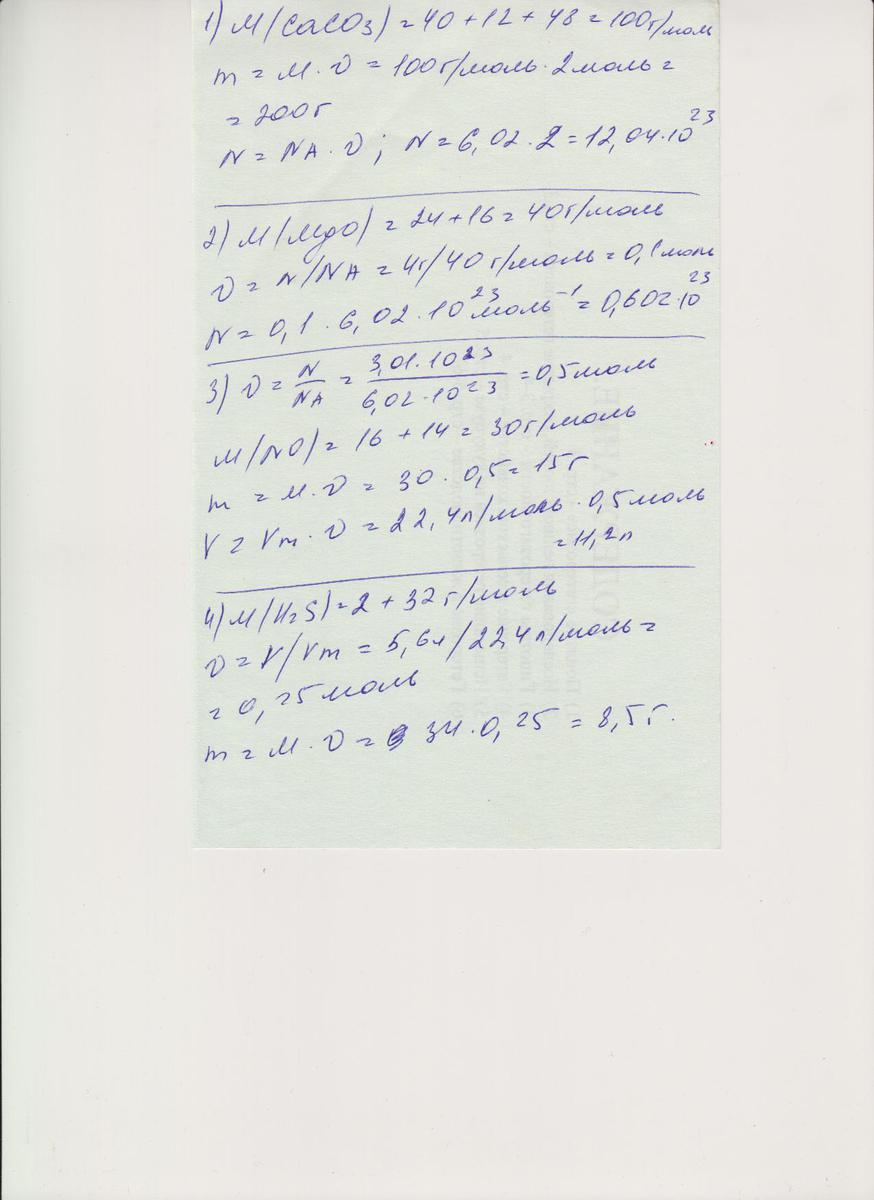 1) M(CaCO3) = 40 + 12 + 48 = 100г/мол
m = M · ν = 100г/моль · 2моль =
= 200г
N = NA · ν ; N = 6,02 · 2 = 12,04·10²³
2) M(MgO) = 24 + 16 = 40г/моль
ν = N/NA = 4г/40 г/моль = 0,1моль
N = 0,1 · 6,02 · 10²³ моль⁻¹ = 0,602·10²³
3) ν = N/NA = 3,01·10²³/6,02·10²³ = 0,5моль
M(NO) = 16 + 14 = 30г/моль
m = M · ν = 30 · 0,5 = 15г
V = Vm · ν = 22,4л/моль · 0,5моль
= 11,2л
4) M(H2S) = 2 + 32 г/моль
ν = V/Vm = 5,6л/22,4л/моль =
= 0,25моль
m = M · ν = 34 · 0,25 = 8,5г.